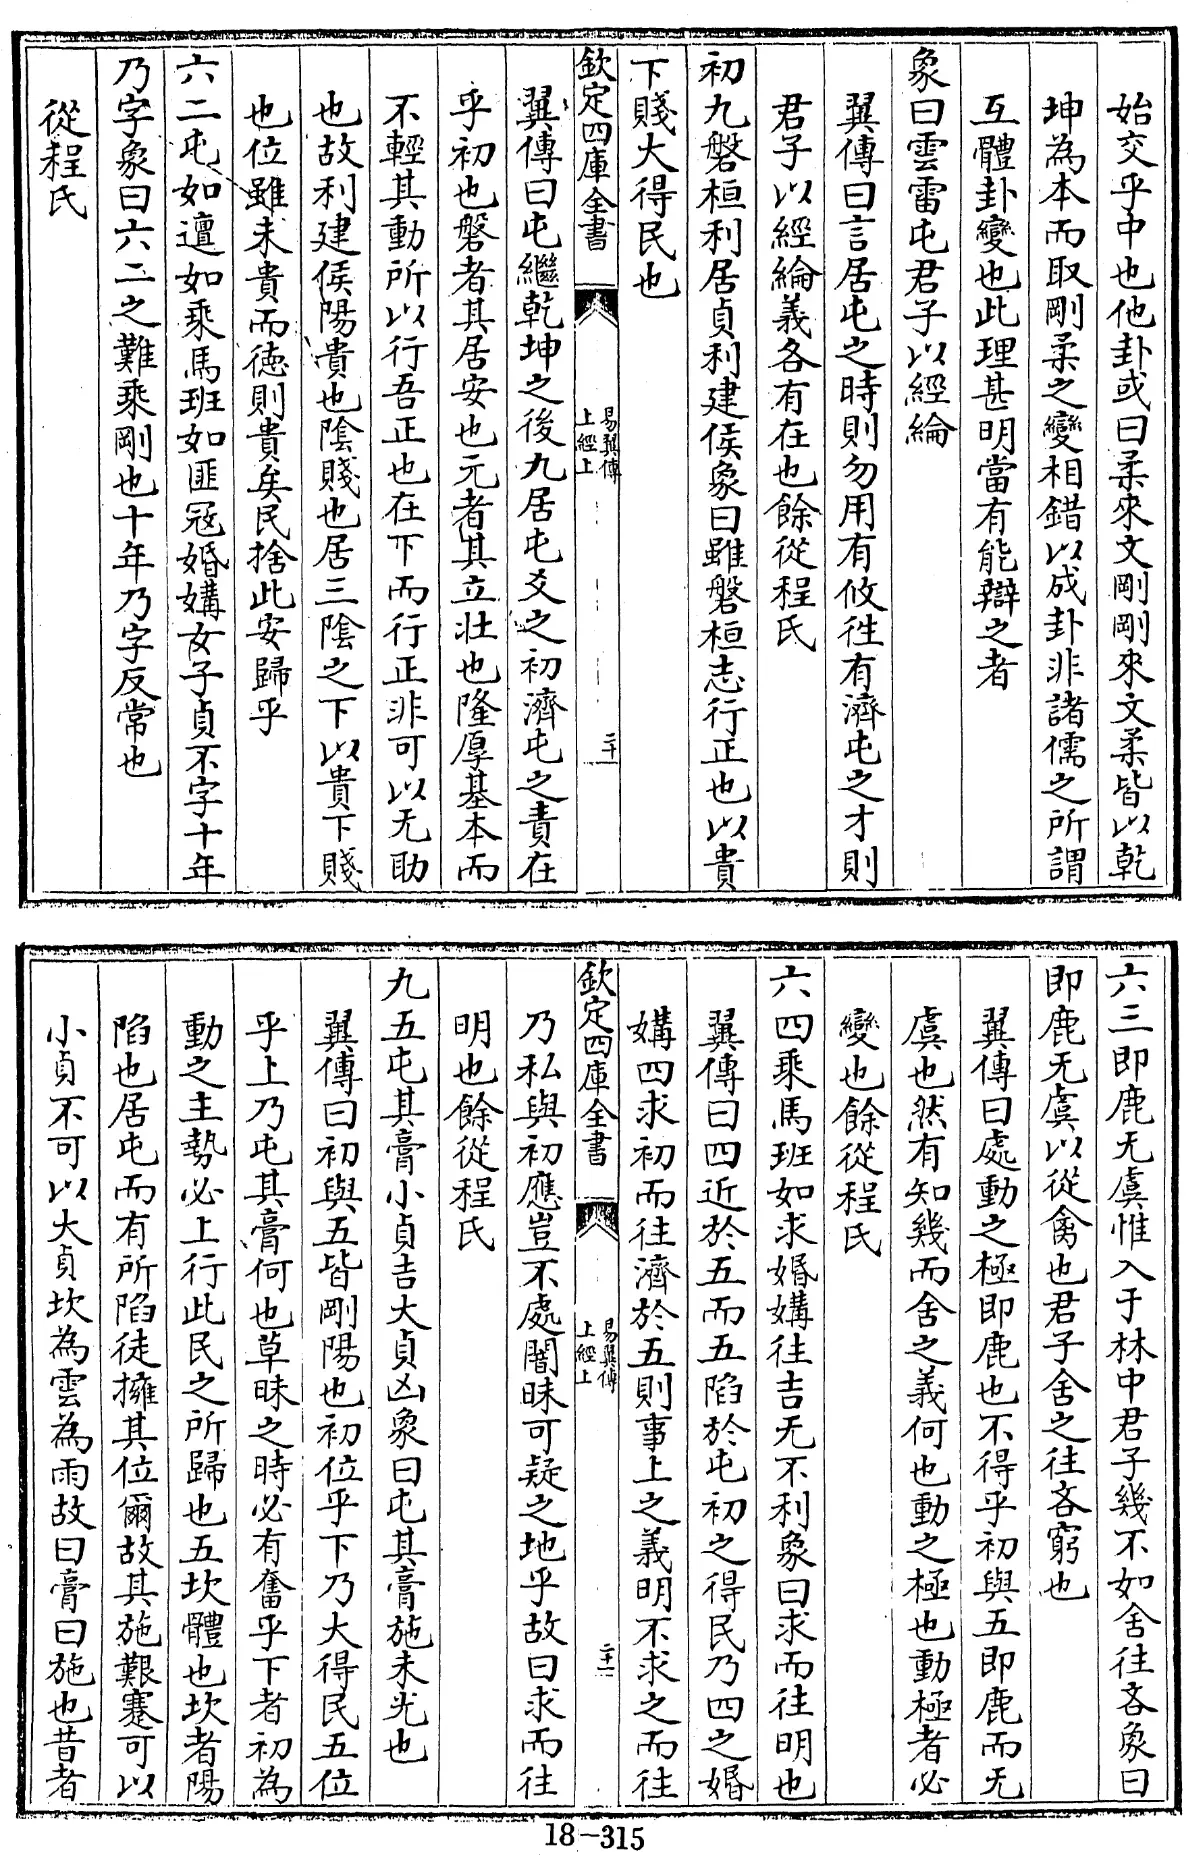 始交乎中也他卦或曰柔來文剛剛來文柔皆以乾
坤為本而取剛柔之變相錯以成卦非諸儒之所謂
互體卦變也此理甚明當有能辯之者
象曰雲雷屯君子以經綸
翼傳曰言居屯之時則勿用有攸往有濟屯之才則
君子以經綸義各有在也餘從程氏
初九磐桓利居貞利建侯象曰雖磐桓志行正也以貴
下賤大得民也
欽定四庫全書
易翼傳
上經上
二十
翼傳曰屯繼乾坤之後九居屯爻之初濟屯之責在
乎初也磐者其居安也元者其立壯也隆厚基本而
不輕其動所以行吾正也在下而行正非可以无助
也故利建侯陽貴也陰賤也居三陰之下以貴下賤
也位雖未貴而徳則貴矣民捨此安歸乎
六二屯如邅如乘馬班如匪冦婚媾女子貞不字十年
乃字象曰六二之難乘剛也十年乃字反常也
從程氏
六三即鹿无虞惟入于林中君子幾不如舍往吝象曰
即鹿无虞以從禽也君子舍之往吝窮也
翼傳曰處動之極即鹿也不得乎初與五即鹿而无
虞也然有知幾而舍之義何也動之極也動極者必
變也餘從程氏
六四乘馬班如求婚媾往吉无不利象曰求而往明也
翼傳曰四近於五而五陷於屯初之得民乃四之婚
媾四求初而往濟於五則事上之義明不求之而往
欽定四庫全書
易翼傳
上經上
二十一
乃私與初應豈不處闇昧可疑之地乎故曰求而往
明也餘從程氏
九五屯其膏小貞吉大貞凶象曰屯其膏施未光也
翼傳曰初與五皆剛陽也初位乎下乃大得民五位
乎上乃屯其膏何也草昧之時必有奮乎下者初為
動之主勢必上行此民之所歸也五坎體也坎者陽
陷也居屯而有所陷徒擁其位爾故其施艱蹇可以
小貞不可以大貞坎為雲為雨故曰膏曰施也昔者
18-315